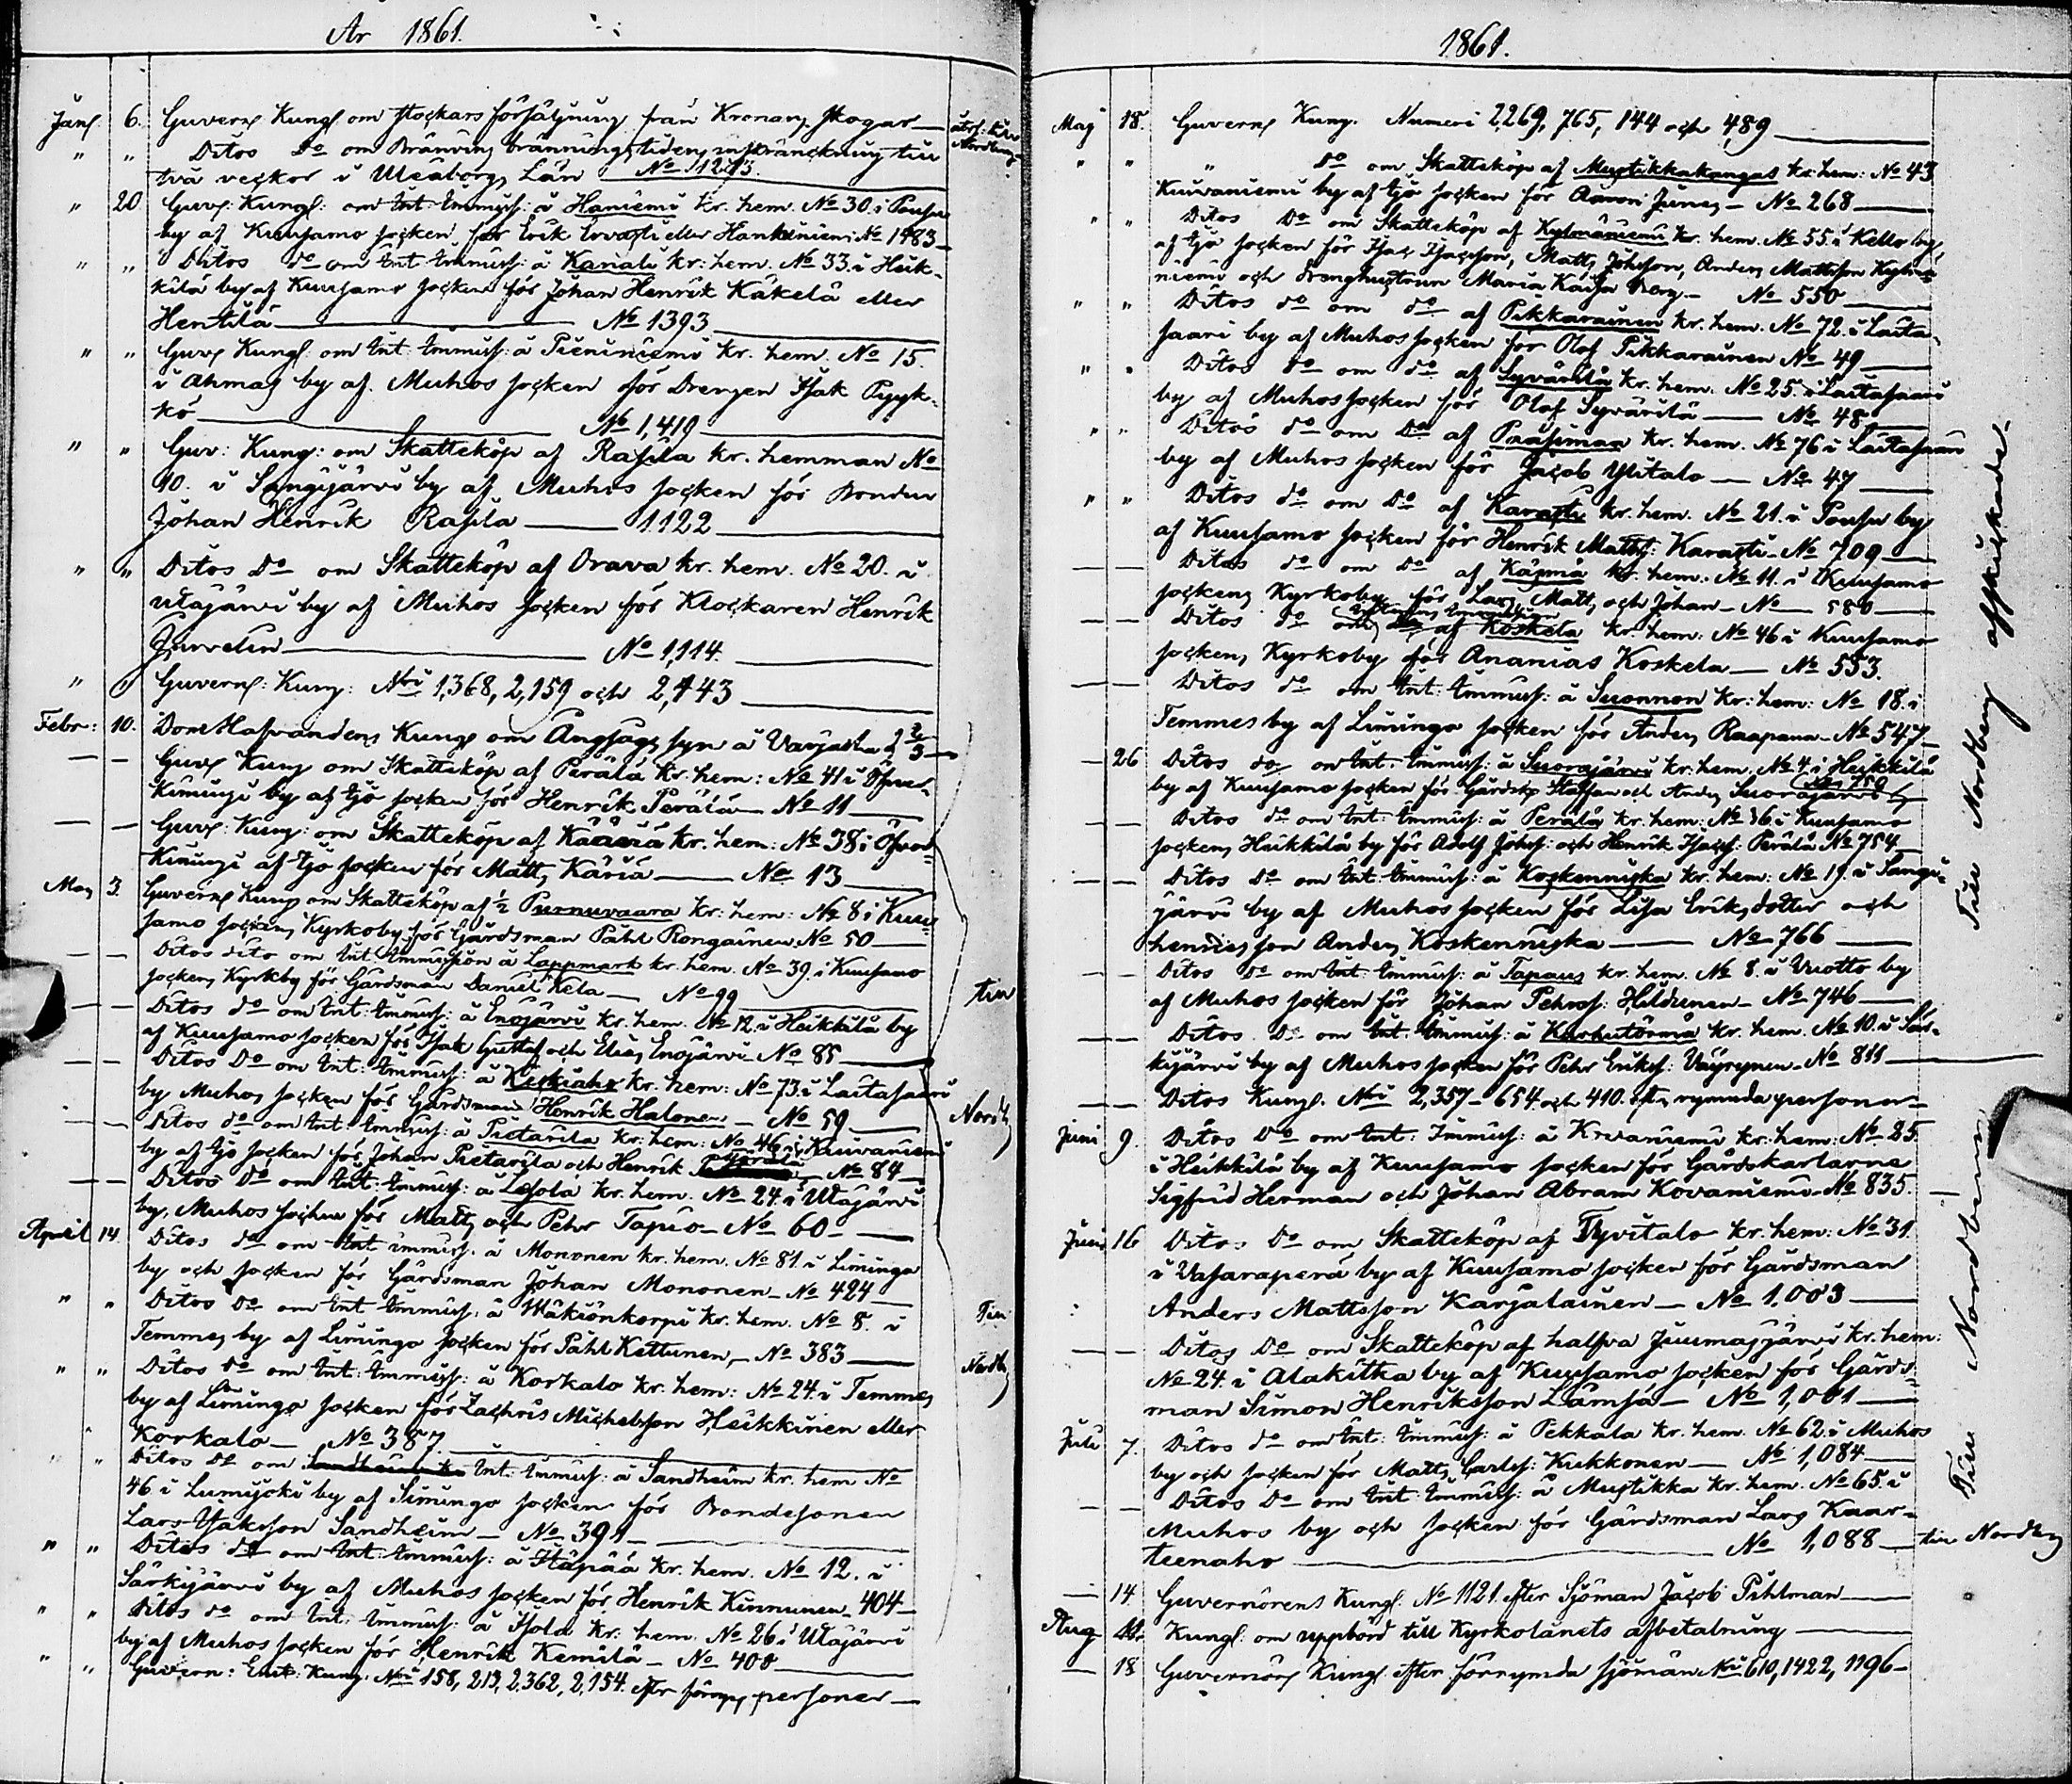 År 1861.
Janr. 6. Guverns Kungl. om Stockars försäljning från Kronans skogar
" " Ditos Do om Bränvins bränningstidens inskränckning till
två veckor i Uleåborgs Län No 1273.
" 20 Guvs: Kungl: om Int: Immiss: å Haniemi kr. hem. No 30. i Pousu
by af Kuusamo socken för Erik Ervasti eller Hankiniemi No 1483
" " Ditos do om Int: Immiss: å Karjala kr: hem. No 33. i Heik-
kilä by af Kuusamo socken för Johan Henrik Käkelä eller
Hentilä No 1393
" " Guvs Kungl: om Int: Immiss: å Pieniniemi kr. hem. No 15.
i Ahmas by af Muhos socken för Drengen Isak Pyyk-
kö No 1,419
" " Guv: Kung: om Skatteköp af Rasila kr. hemman No
10. i Sangijärvi by af Muhos socken för Bonden
Johan Henrik Rasila 1122
" " Ditos Do om Skatteköp af Orava kr. hem. No 20. i
Utajärvi by af Muhos socken för Klockaren Henrik
Jurvelin No 1,114.
" " Guverns: Kung: Nri 1,368, 2,159 och 2,443
Febr: 10. Domhafvandens Kungs om Ängssägs syn å
— — Guvs Kung om Skatteköp af Perälä kr. hem: No 41 i Öfver-
Kiimingi by af Ijo socken för Henrik Perälä No 11
— — Guvs: Kung: om Skatteköp af Kääriä kr. hem: No 38 i Öfver-
Kiimingi af Ijo socken för Matts Käriä No 13
Mars 3. Guverns Kung om Skatteköp af ½ Purnuvaara kr: hem: No 8 i Kuu-
samo sockens Kyrkoby för Gårdsman Påhl Rongainen No 50
— — Ditos dito om Int: Immission å Lappmark kr. hem. No 39. i Kuusamo
sockens Kyrkby för Gårdsman Daniel Kela No 99
— — Ditos do om Int: Immiss: å Enojärvi kr. hem. No 12. i Heikkilä by
af Kuusamo socken för Isak Gustaf och Elias Enojärvi No 85
— — Ditos Do om Int: Immiss: å Keskiaho kr. hem: No 73. i Laitasaari
by Muhos socken för Gårdsman Henrik Halonen — No 59
— — Ditos do om Int: Immiss: å Pietarila kr: hem: No 46 i Kuivaniemi
by af Ijo socken för Johan Pietarila och Henrik No 84
— — Ditos Do om Int: Immiss: å Lesola kr. hem. No 24. i Utajärvi
by, Muhos socken för Matts och Pehr Tapio — No 60
April 14. Ditos do om Int immiss. å Mononen kr. hem. No 81. i Limingo
by och socken för Gårdsman Johan Mononen — No 424
" " Ditos Do om Int Immiss. å Mäkiönkorpi kr. hem. No 8. i
Temmes by af Limingo socken för Påhl Kettunen, — No 383
" " Ditos do om Int: Immiss: å Korkalo kr. hem: No 24. i Temmes
by af Limingo socken för Zachris Michelsson Heikkinen eller
Korkalo — No 387.
" " Ditos do om Int: Immiss: å Sandheim kr. hem No
46 i Lumijoki by af Limingo socken för Bondesonen
Lars Isaksson Sandheim — No 391
" " Ditos do om Int: Immiss: å Hapää kr. hem. No 12. i
Särkijärvi by af Muhos socken för Henrik Kinnunen — 404
" " Ditos do om Int: Immiss: å Isola kr: hem. No 26 i Utajärvi
by af Muhos socken för Henrik Kemilä — No 400
" " Guvern: Kung. Nri 158, 213, 2,362, 2,154. efter personer
till
Nordb
Till
Nordb
1861.
Maj 18. Guverns Kung. Numeri 2,269, 765, 144 och 489
" " " Do om Skatteköp af Mustikkakangas kr: hem: No 43
Kuivaniemi by af Ijo socken för Aaron Junes — No 268
" " Ditos Do om Skatteköp af Kylmäniemi kr. hem. No 55. i Kello by
af Ijo socken för Isac Isacsson, Matts Johsson, Anders Mattsson Kylmä-
niemi och Drenghustrun Maria Kaisa Berg — No 550
" " Ditos do om do af Pikkarainen kr. hem. No 72. i Laita-
saari by af Muhos socken för Olof Pikkarainen No 49
" " Ditos do om do af Syvärilä kr. hem. No 25. i Laitasaari
by af Muhos socken för Olof Syvärilä — No 48
" " Ditos do om Do af Paasimaa kr. hem. No 76 i Laitasaari
by af Muhos socken för Jacob Ylitalo — No 47
" " Ditos do om Do af Karasti kr. hem. No 21. i Pousu by
af Kuusamo socken för Henrik Mattss: Karasti — No 709
— — Ditos do om do af Käpmä kr. hem: No 11. i Kuusamo
sockens Kyrkoby för Lars, Matts och Johan — No 580
— — Ditos do om af Koskela kr. hem: No 46 i Kuusamo
sockens Kyrkoby för Ananias Koskela — No 553.
— — Ditos do om Int: Immiss: å Suonnon kr: hem: No 18. i
Temmes by af Limingo socken för Anders Raapana — No 547
— 26 Ditos do om Int: Immiss: å Suorajärvi kr: hem. No 4 i Heikkilä
by af Kuusamo socken för Gårdsk Staffan och Anders Suorajärvi No 750
— — Ditos do om Int: Immiss: å Perälä kr: hem: No 36. i Kuusamo
sockens Heikkilä by för Adolf Johss: och Henrik Isacss: Perälä No 754
— — Ditos Do om Int: Immiss: å Koskenniska kr: hem: No 19. i Sangi-
järvi by af Muhos socken för Lisa Eriksdotter och
hennes son Anders Koskenniska No 766
— — Ditos do om Int: Immiss: å Tapaus kr. hem. No 8. i Vuotto by
af Muhos socken för Johan Pehrss: Hildunen — No 746
— — Ditos Do om Int: Immiss: å Karhutörmä kr. hem. No 10. i Sär-
kijärvi by af Muhos socken för Pehr Eriks: Väyrynen — No 811
— — Ditos Kungl. Nri 2,357 — 654 och 410. efter rymda personer
Juni 9. Ditos Do om Int: Immiss: å Kovaniemi kr: hem: No 25.
i Heikkilä by af Kuusamo socken för Gårdskarlarne
Sigfrid Herman och Johan Abram Kovaniemi — No 835.
Juni 16 Ditos Do om Skatteköp af Tyvitalo kr: hem: No 31
i Vasaraperä by af Kuusamo socken för Gårdsman
Anders Mattsson Karjalainen — No 1,003
— — Ditos Do om Skatteköp af halfva Juumasjärvi kr. hem:
No 24. i Alakitka by af Kuusamo socken för Gårds-
man Simon Henriksson Lämsä — No 1,001
Juli 7. Ditos do om Int: Immiss: å Pekkala kr. hem. No 62. i Muhos
by och socken för Matts Carlss: Kukkonen — No 1,084
— — Ditos Do om Int: Immiss: å Mustikka kr. hem. No 65. i
Muhos by och socken för Gårdsman Lars Kaar-
teenaho No 1,088
till Nordberg
— 14 Guvernörens Kungl: No 1121 efter Sjöman Jacob Pihlman
Aug Kungl: om uppbörd till Kyrkolånets afbetalning
— 18 Guvernörs Kungl. efter förrymda sjömän Nri 610, 1422, 1196
Till Nordberg afskickade
Till Nordberg